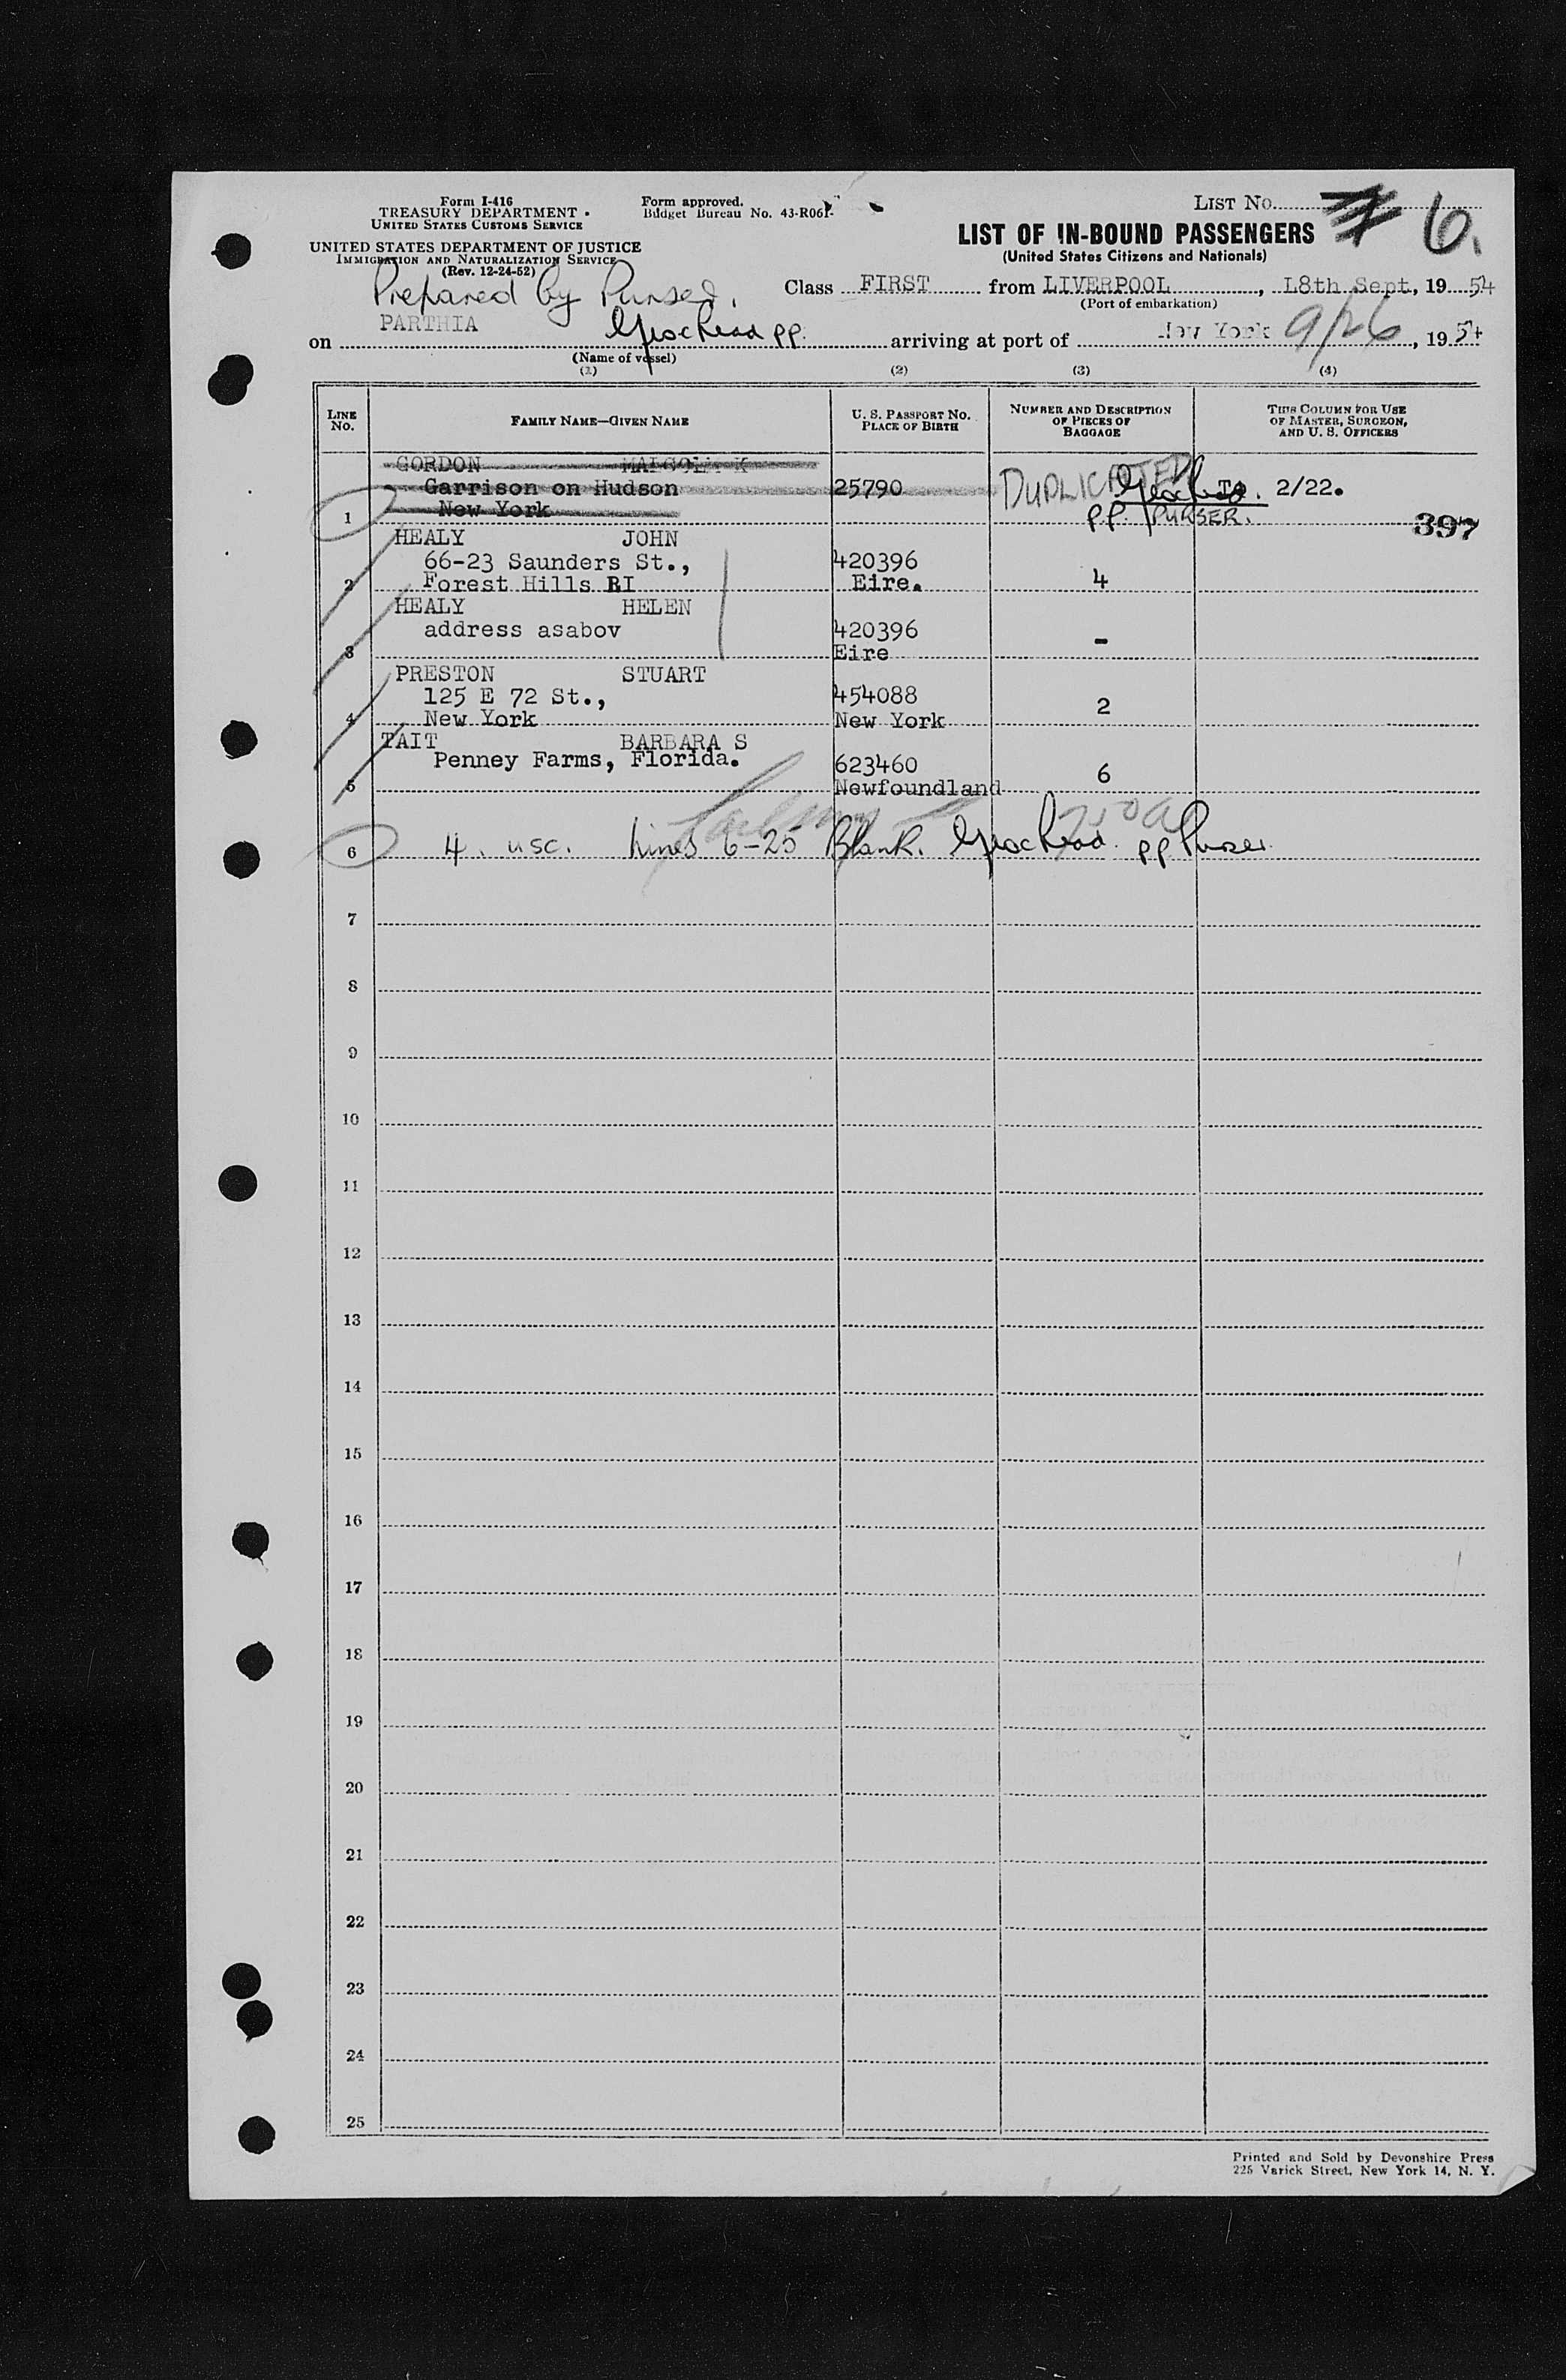 Form I-416
TREASURY DEPARTMENT
UNITED STATES CUSTOMS SERVICE
UNITED STATES DEPARTMENT OF JUSTICE
IMMIGRATION AND NATURALIZATION SERVICE
(Rev. 12-24-52)
Form approved.
Budget Bureau No. 43-R061-
LIST No. 6.
LIST OF IN-BOUND PASSENGERS
(United States Citizens and Nationals)
Prepared by Purser.
Class FIRST from LIVERPOOL, 18th Sept, 1954
(Port of embarkation)
on PARTHIA pp. arriving at port of New York 9/26, 1954
(Name of vessel)
(1) (2) (3) (4)
LINE No.
FAMILY NAME—GIVEN NAME
U. S. PASSPORT NO. PLACE OF BIRTH
NUMBER AND DESCRIPTION OF PIECES OF BAGGAGE
THIS COLUMN FOR USE OF MASTER, SURGEON, AND U. S. OFFICERS
GORDON MALCOLM K
Garrison on Hudson 25790 DUPLICATED TO. 2/22.
1 New York pp. PURSER. 397
HEALY JOHN
66-23 Saunders St., 420396
2 Forest Hills RI Eire. 4
HEALY HELEN
address asabov 420396
3 Eire -
PRESTON STUART
125 E 72 St., 454088
4 New York New York 2
TAIT BARBARA S
Penney Farms, Florida. 623460
5 Newfoundland 6
6 4. USC. Lines 6-25 Blank. pp Purser
7
8
9
10
11
12
13
14
15
16
17
18
19
20
21
22
23
24
25
Printed and Sold by Devonshire Press
225 Varick Street, New York 14, N. Y.